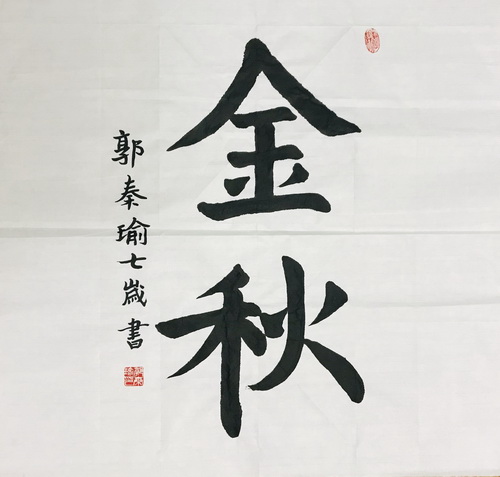 金秋
郭秦瑜七歲書